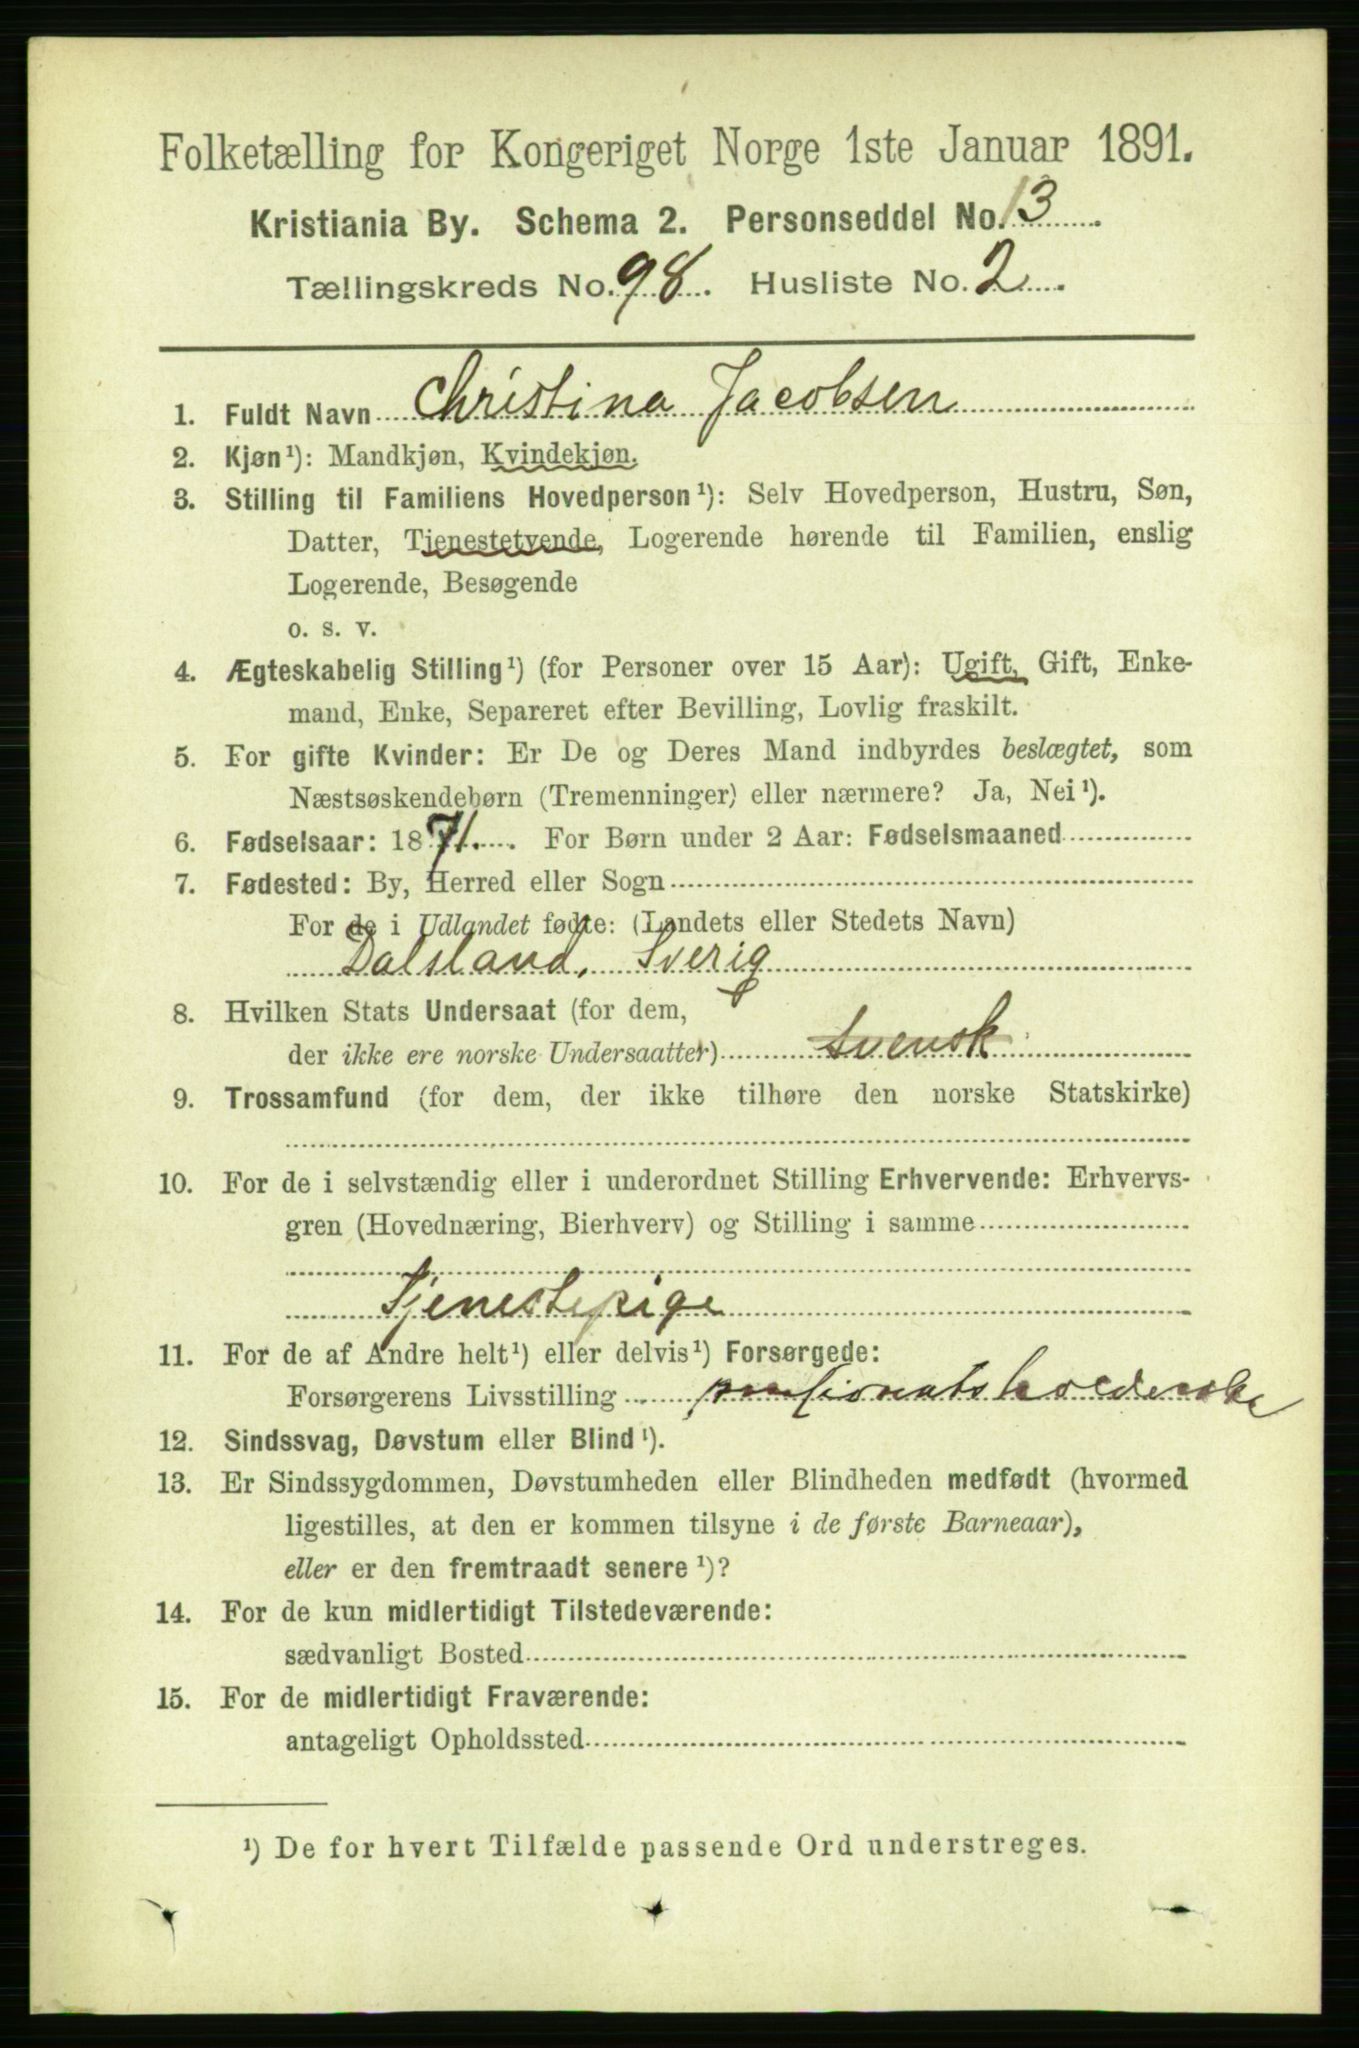 Folketælling for Kongeriget Norge 1ste Januar 1891.
Kristiania By. Schema 2. Personseddel No. 13
Tællingskreds No. 98. Husliste No. 2
1. Fuldt Navn Christina Jacobsen
2. Kjøn¹): Mandkjøn, Kvindekjøn.
3. Stilling til Familiens Hovedperson¹): Selv Hovedperson, Hustru, Søn,
Datter, Tjenestetyende, Logerende hørende til Familien, enslig
Logerende, Besøgende
o. s. v.
4. Ægteskabelig Stilling¹) (for Personer over 15 Aar): Ugift, Gift, Enke-
mand, Enke, Separeret efter Bevilling, Lovlig fraskilt.
5. For gifte Kvinder: Er De og Deres Mand indbyrdes beslægtet, som
Næstsøskendebørn (Tremenninger) eller nærmere? Ja, Nei¹).
6. Fødselsaar: 1871. For Børn under 2 Aar: Fødselsmaaned
7. Fødested: By, Herred eller Sogn
For de i Udlandet fødte: (Landets eller Stedets Navn)
Dalsland, Sverig
8. Hvilken Stats Undersaat (for dem,
der ikke ere norske Undersaatter) Svensk
9. Trossamfund (for dem, der ikke tilhøre den norske Statskirke)
10. For de i selvstændig eller i underordnet Stilling Erhvervende: Erhvervs-
gren (Hovednæring, Bierhverv) og Stilling i samme
Tjenestepige
11. For de af Andre helt¹) eller delvis¹) Forsørgede:
Forsørgerens Livsstilling pensionatsholderske
12. Sindssvag, Døvstum eller Blind¹).
13. Er Sindssygdommen, Døvstumheden eller Blindheden medfødt (hvormed
ligestilles, at den er kommen tilsyne i de første Barneaar),
eller er den fremtraadt senere¹)?
14. For de kun midlertidigt Tilstedeværende:
sædvanligt Bosted
15. For de midlertidigt Fraværende:
antageligt Opholdssted
¹) De for hvert Tilfælde passende Ord understreges.